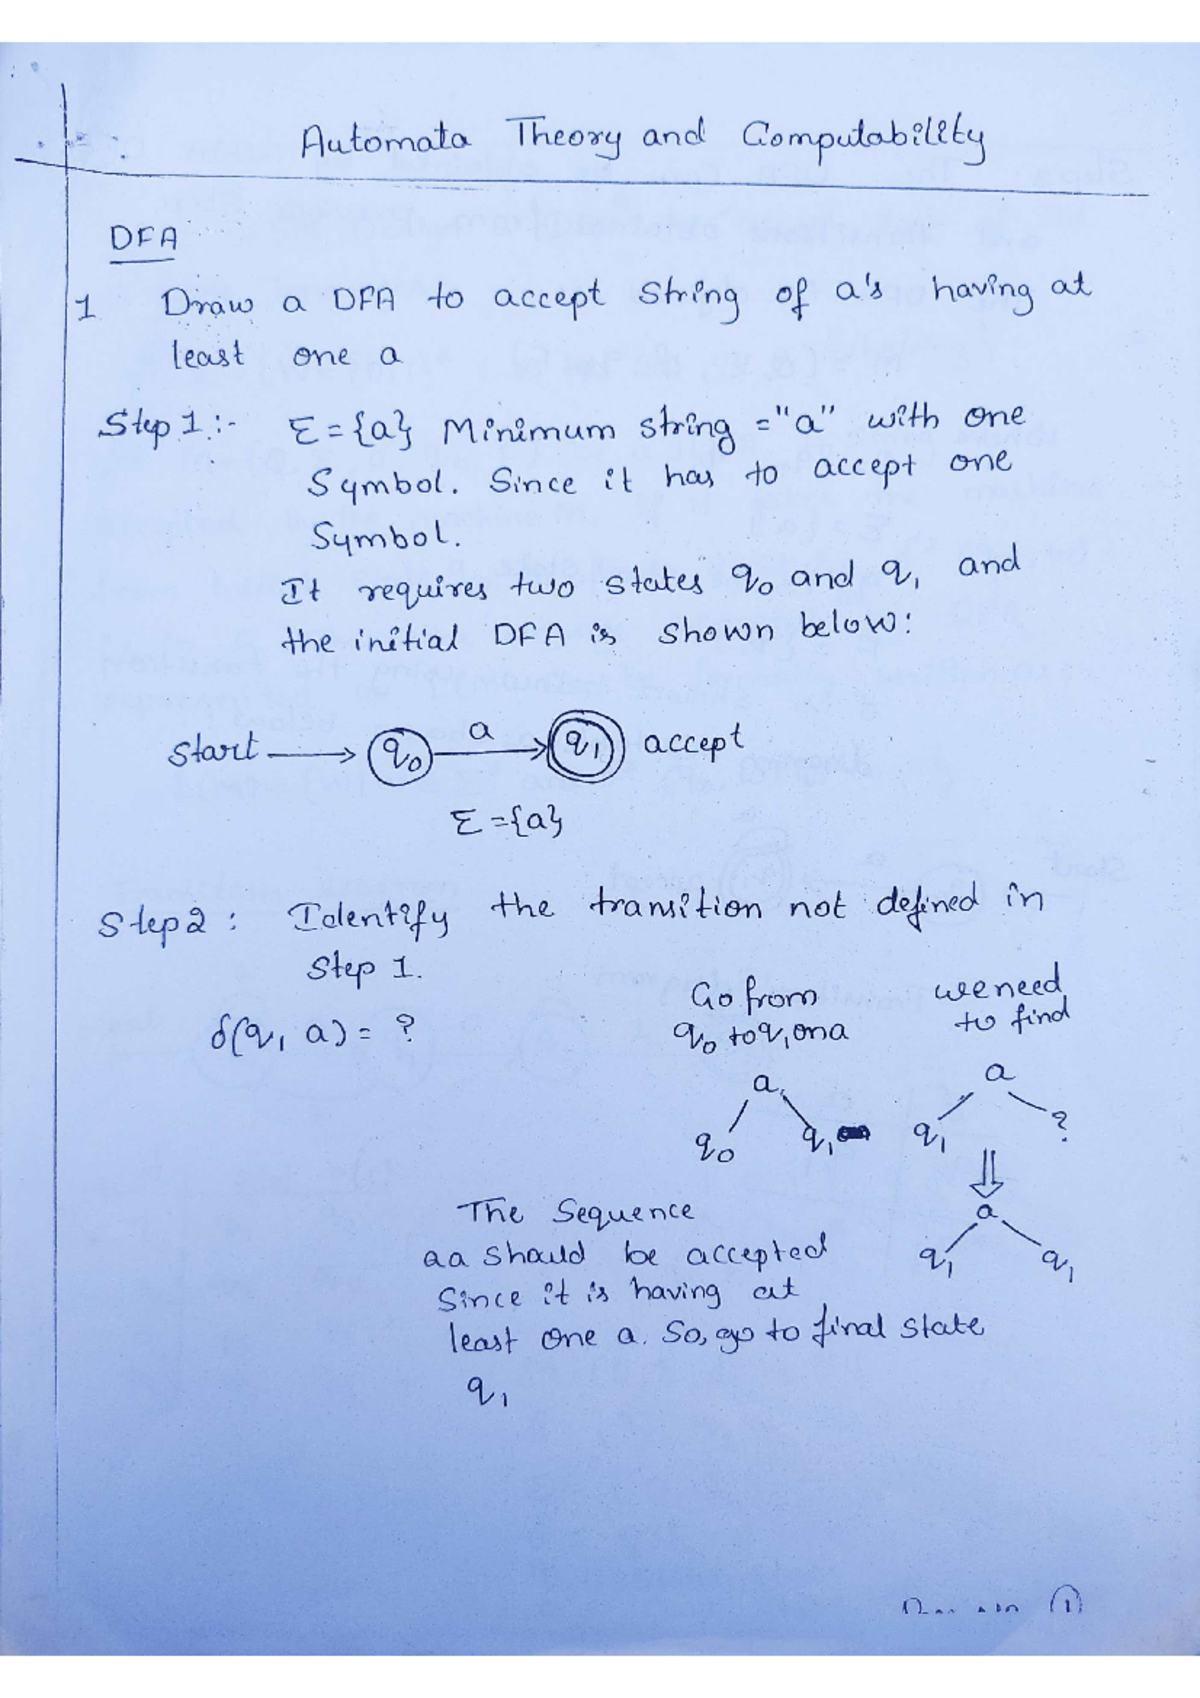 Automata Theory and Computability
DFA
1 Draw a DFA to accept string of a's having at
least one a
Step 1 :- Σ = {a} Minimum string = "a" with one
Symbol. Since it has to accept one
Symbol.
It requires two states q0 and q1 and
the initial DFA is shown below:
Start q0 a q1 accept
Σ = {a}
Step 2 : Identify the transition not defined in
Step 1.
δ(q1 a) = ?
Go from
q0 to q1 on a
we need
to find
a
q0 q1
a
q1 ?
⇓
a
q1 q1
The Sequence
aa should be accepted
Since it is having at
least one a. So, go to final state
q1
1